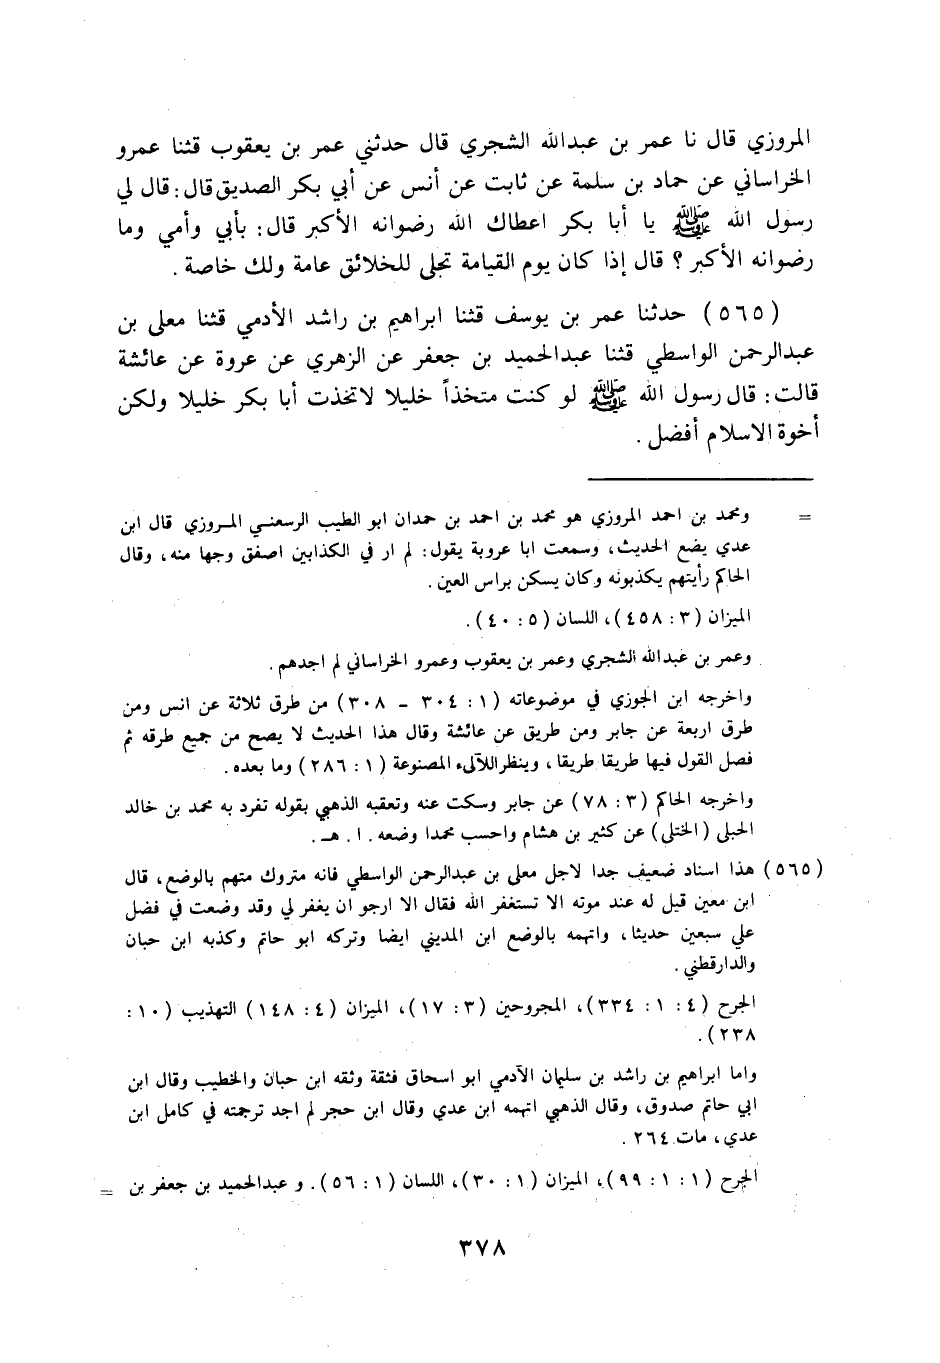 المروزي قال نا عمر بن عبدالله الشجري قال حدثني عمر بن يعقوب قثنا عمرو
الخراساني عن حماد بن سلمة عن ثابت عن أنس عن أبي بكر الصديق قال: قال لي
رسول الله ﷺ يا أبا بكر اعطاك الله رضوانه الأكبر قال: بأبي وأمي وما
رضوانه الأكبر؟ قال إذا كان يوم القيامة تجلى للخلائق عامة ولك خاصة.
(٥٦٥) حدثنا عمر بن يوسف قثنا ابراهيم بن راشد الأدمي قثنا معلى بن
عبدالرحمن الواسطي قثنا عبدالحميد بن جعفر عن الزهري عن عروة عن عائشة
قالت: قال رسول الله ﷺ لو كنت متخذاً خليلا لاتخذت أبا بكر خليلا ولكن
أخوة الاسلام أفضل.
= ومحمد بن احمد المروزي هو محمد بن احمد بن حمدان ابو الطيب الرسعني المروزي قال ابن
عدي يضع الحديث، وسمعت ابا عروبة يقول: لم ار في الكذابين اصفق وجها منه، وقال
الحاكم رأيتهم يكذبونه وكان يسكن براس العين.
الميزان (٣: ٤٥٨)، اللسان (٥: ٤٠).
وعمر بن عبدالله الشجري وعمر بن يعقوب وعمرو الخراساني لم اجدهم.
واخرجه ابن الجوزي في موضوعاته (١: ٣٠٤ - ٣٠٨) من طرق ثلاثة عن انس ومن
طرق اربعة عن جابر ومن طريق عن عائشة وقال هذا الحديث لا يصح من جميع طرقه ثم
فصل القول فيها طريقا طريقا، وينظر اللآلىء المصنوعة (١: ٢٨٦) وما بعده.
واخرجه الحاكم (٣: ٧٨) عن جابر وسكت عنه وتعقبه الذهبي بقوله تفرد به محمد بن خالد
الحبلى (الختلى) عن كثير بن هشام واحسب محمدا وضعه. ا. هـ.
(٥٦٥) هذا اسناد ضعيف جدا لاجل معلى بن عبدالرحمن الواسطي فانه متروك متهم بالوضع، قال
ابن معين قيل له عند موته الا تستغفر الله فقال الا ارجو ان يغفر لي وقد وضعت في فضل
علي سبعين حديثا، واتهمه بالوضع ابن المديني ايضا وتركه ابو حاتم وكذبه ابن حبان
والدارقطني.
الجرح (٤: ١: ٣٣٤)، المجروحين (٣: ١٧)، الميزان (٤: ١٤٨) التهذيب (١٠:
٢٣٨).
واما ابراهيم بن راشد بن سليمان الآدمي ابو اسحاق فثقة وثقه ابن حبان والخطيب وقال ابن
ابي حاتم صدوق، وقال الذهبي اتهمه ابن عدي وقال ابن حجر لم اجد ترجمته في كامل ابن
عدي، مات ٢٦٤.
الجرح (١: ١: ٩٩)، الميزان (١: ٣٠)، اللسان (١: ٥٦). و عبدالحميد بن جعفر بن =
٣٧٨